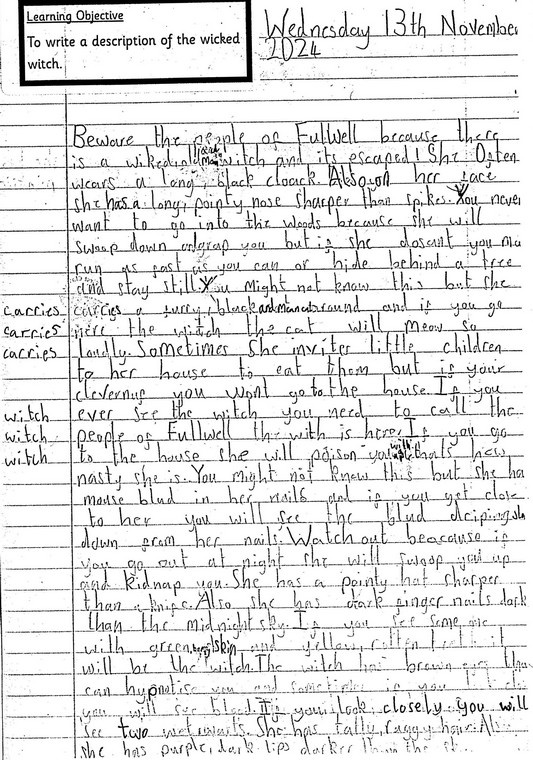 Learning Objective
To write a description of the wicked
witch.
Wednesday 13th November
2024
Beware the people of Fullwell because there
is a wiked, old witch and its escaped! She Often
wears a long, black cloack. Also on her face
she has a long, pointy nose sharper than spikes. You never
want to go into the woods because she will
swoop down and you but if she dosant you
run as fast as you can or hide behind a tree
and stay still. You might not know this but she
carries carries a furry, black around and if you go
carries here the witch the cat will meow so
carries loudly. Sometimes She invites little children
to her house to eat them but if your
clevernuf you wont go to the house. If you
witch ever see the witch you need to call the
witch people of Fullwell the with is here. If you go
witch to the house she will poison you thats how
nasty she is. You might not know this but she
mouse blud in her nails and if you get close
to her you will see the blud
down from her nails. Watch out beacause if
you go out at night she will swoop you up
and kidnap you. She has a pointy hat sharper
than a knife. Also she has dark finger nails dark
than the midnight sky. If you see some one
with green, skin and yellow, rotten teeth it
will be the witch. The witch has brown eyes
can hypnotise you and sometimes if you
you will see blood. If you look closely you will
see two She has raggy hair.
she has purple, dark lips darker than the